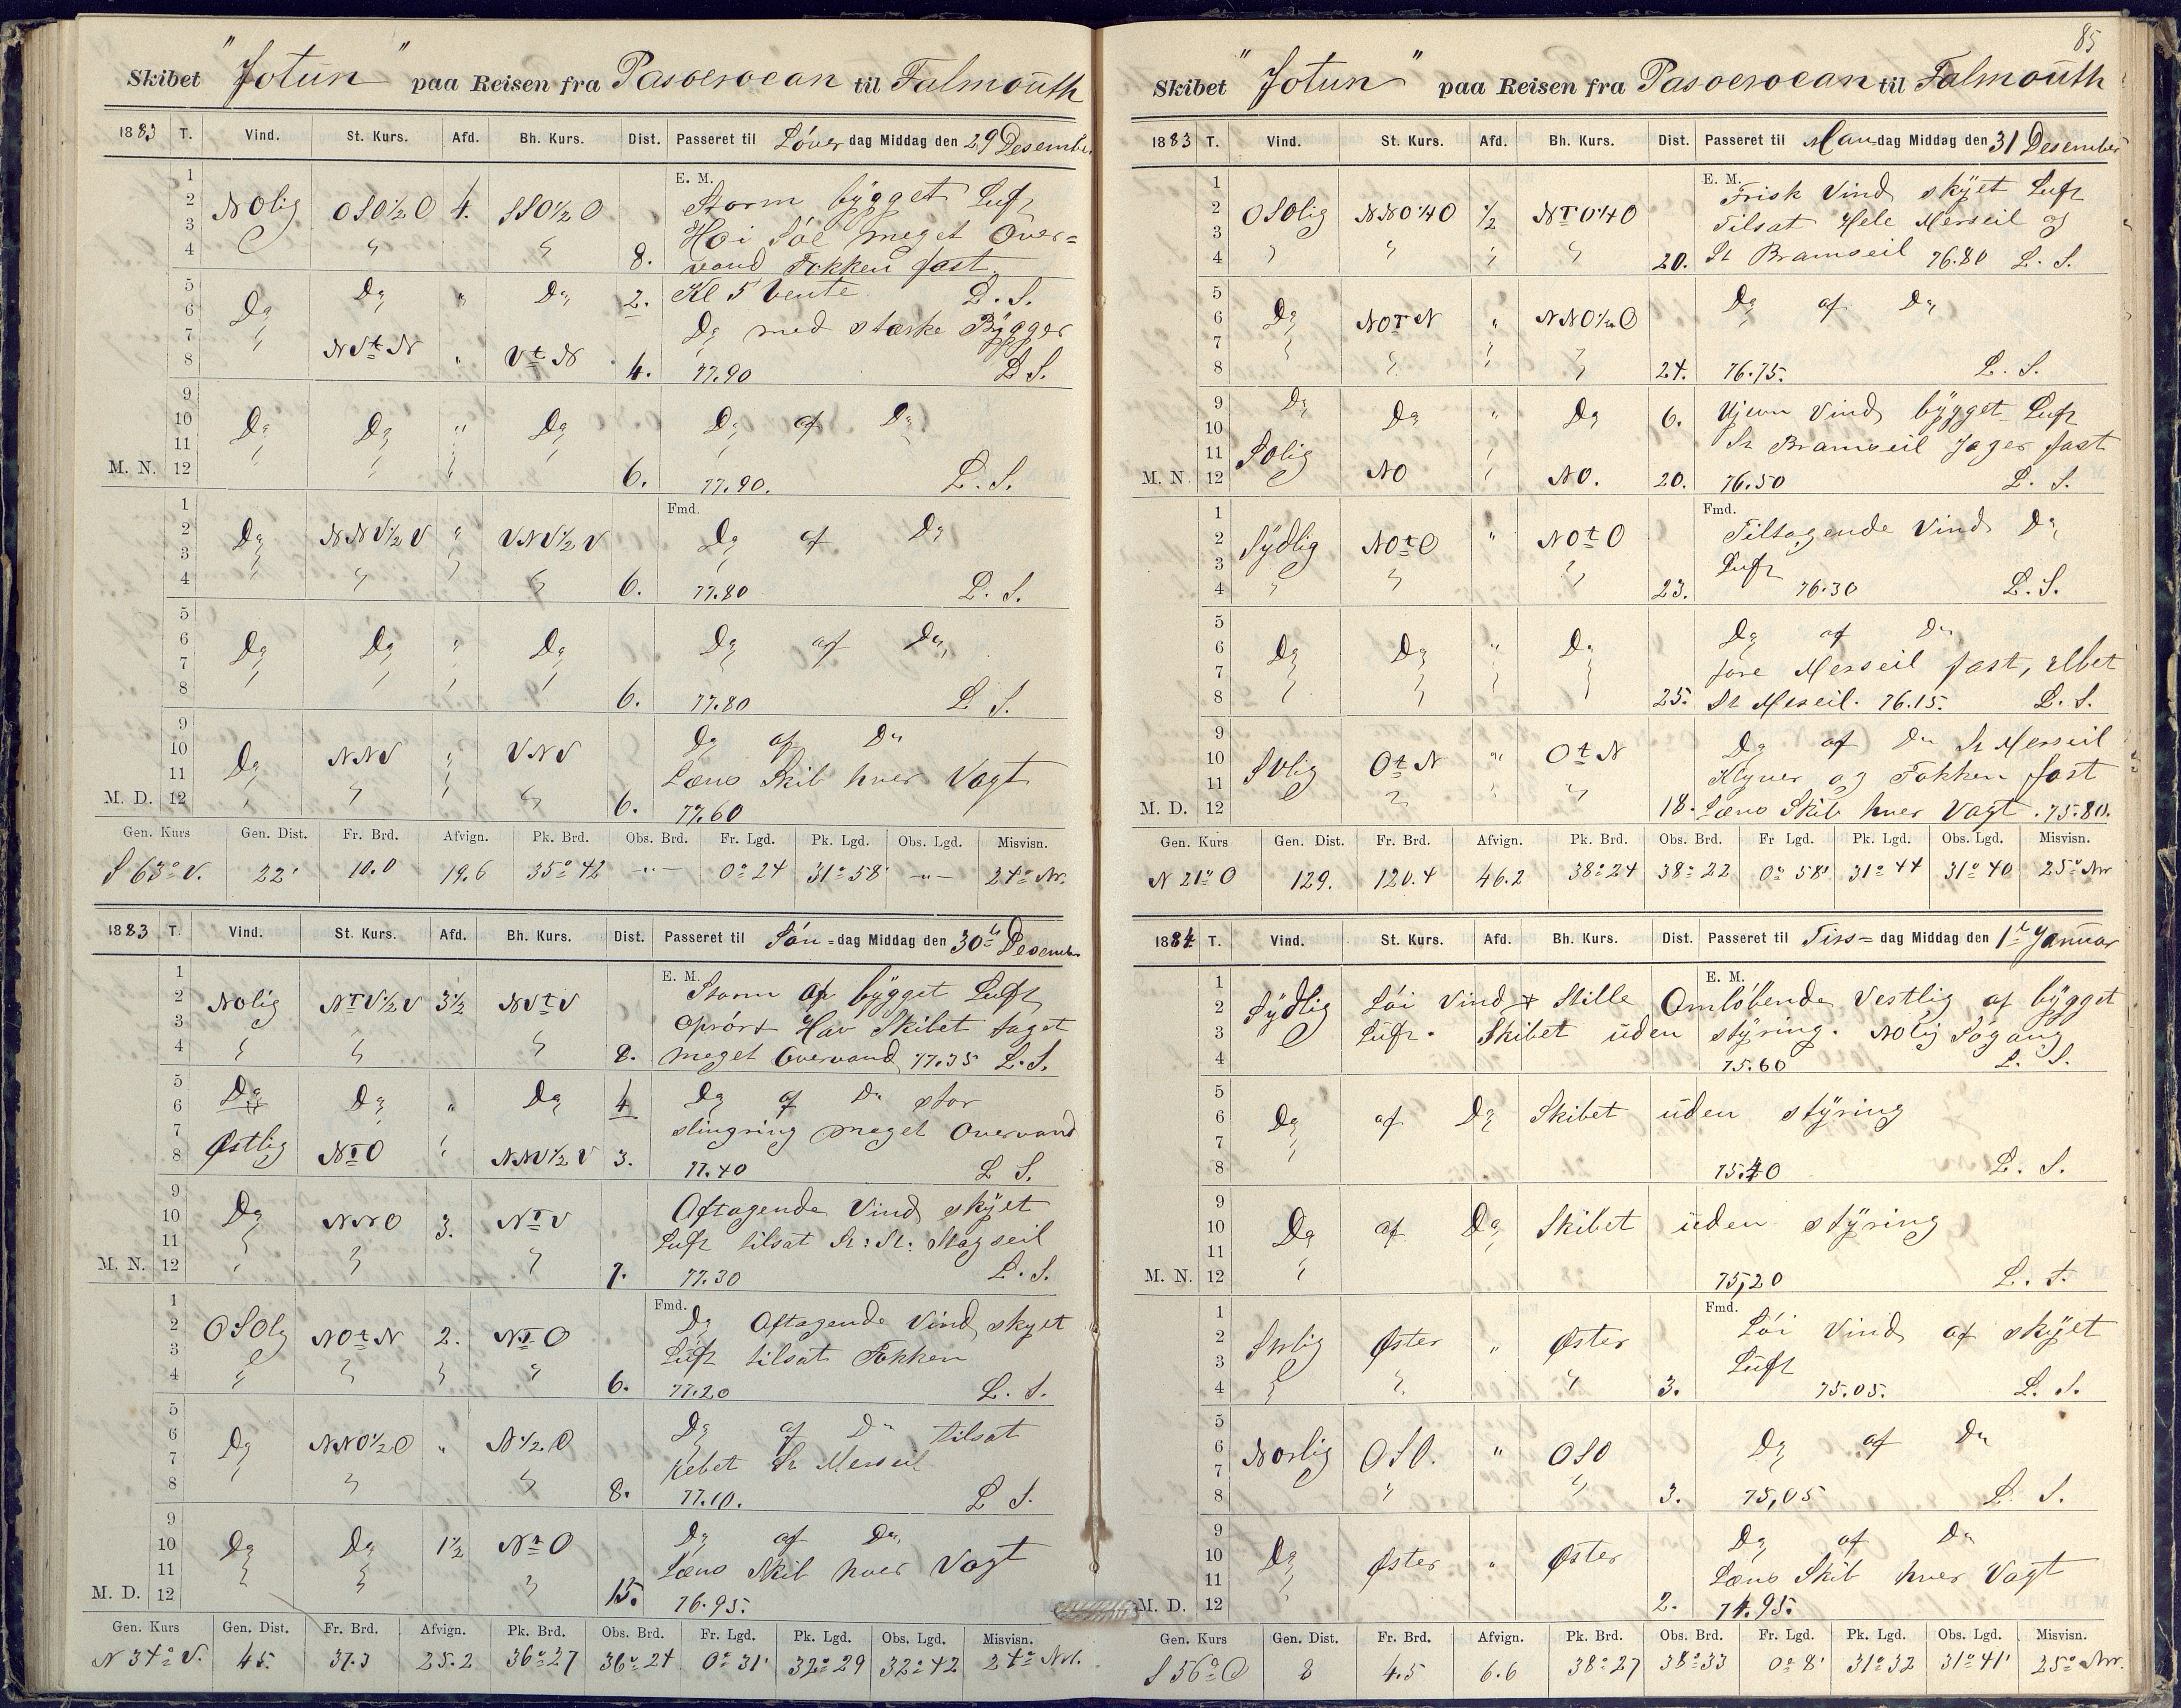 Skibet "Jotun" paa Reisen fra Pasoeroean til Falmouth
1883 T. Vind. St. Kurs. Afd. Bh. Kurs. Dist. Passeret til Löver dag Middag den 29 Desember
E. M.
1
2 NOlig OSO½O 4. SSO½O Storm bygget Luft
3 Höi Söe meget Over=
4 " " 8. vand Fokken fast
5 Do Do " Do 2. Kl 5 vente L. S.
6 Do med stærke Bygger
7 NVtN " VtN
8 4. 77.90 L S.
9
10 Do Do " Do Do af Do
11
M. N. 12 6. 77.90. L. S.
Fmd.
1
2 Do NNV½V " VNV½V Do af Do
3
4 6. 77.80 L. S.
5
6 Do Do " Do Do af Do
7
8 6. 77.80 L S.
9 Do af Do
10 Do NNV " VNV
11 Læns Skib hver Vagt
M. D. 12 6. 77.60
Gen. Kurs Gen. Dist. Fr. Brd. Afvign. Pk. Brd. Obs. Brd. Fr. Lgd. Pk. Lgd. Obs. Lgd. Misvisn.
S 63° V. 22' 10.0 19.6 35° 42 -"- 0° 24 31° 58' -"- 24° Nv.
1883 T. Vind. St. Kurs. Afd. Bh. Kurs. Dist. Passeret til Sön=dag Middag den 30te Desember
E. M.
1
2 NOlig NTV½V 3½ NVtV Storm af bygget Luft
3 oprört Hav Skibet taget
4 8. meget Overvand 77.35 L. S.
5 Do Do " Do 4 Do af Do stor
6
7 slingring meget Overvand
8 Østlig NTO " NNV½V 3. 77.40 L S.
9
10 Do NNO 3. NTV Aftagende Vind skyet
11 Luft tilsat St: St: Stagseil
M. N. 12 7. 77.30 L. S.
Fmd.
1
2 OSOlg NOtN 2. NTO Do Aftagende Vind skyet
3 Luft tilsat Fokken
4 6. 77.20 L. S.
5
6 Do NNO½O " N½O Do af Do tilsat
7 St Merseil
8 8. 77.10. L S.
9
10 Do Do 1½ NtO Do af Do
11 Læns Skib hver Vagt
M. D. 12 15. 76.95.
Gen. Kurs Gen. Dist. Fr. Brd. Afvign. Pk. Brd. Obs. Brd. Fr. Lgd. Pk. Lgd. Obs. Lgd. Misvisn.
N 34° V. 45. 37.3 25.2 36° 27 36° 24 0° 31' 32° 29 32° 42 24° Nv.
85
Skibet "Jotun" paa Reisen fra Pasoeroean til Falmouth
1883 T. Vind. St. Kurs. Afd. Bh. Kurs. Dist. Passeret til Man dag Middag den 31 Desember
E. M.
1 Frisk Vind skyet Luft
2 OSOlig NNO¼O ½ NTO¼O Tilsat Hele Merseil og
3
4 20. St Bramseil 76.80 L. S.
5 Do af Do
6 Do NOTN " NNO½O
7
8 24. 76.75. L. S.
9 Do Do " Do 6. Ujevn Vind bygget Luft
10
11 SOlig St Bramseil Jager fast
M. N. 12 NO NO. 20. 76.50 L. S.
Fmd.
1 Tiltagende Vind Do
2 Sydlig NOtO " NOtO
3 Luft
4 23. 76.30 L. S.
5 Do af Do
6 Do Do " Do
7 fore Merseil fast,
8 25. St Merseil. 76.15. L. S.
9 Do af Do St Merseil
10 SVlig OtN " OtN
11 Klyver og Fokken fast
M. D. 12 18. Læns Skib hver Vagt. 75.80.
Gen. Kurs Gen. Dist. Fr. Brd. Afvign. Pk. Brd. Obs. Brd. Fr Lgd. Pk. Lgd. Obs. Lgd. Misvisn.
N 21° O 129. 120.4 46.2 38° 24 38° 22 0° 58' 31° 44 31° 40 25° Nv
1884 T. Vind. St. Kurs. Afd. Bh. Kurs. Dist. Passeret til Tirs= dag Middag den 1te Januar
E. M.
1
2 Sydlig Löi Vind + Stille Omlöbende Vestlig af bygget
3 Luft. Skibet uden styring. NOlig Sögang
4 75.60 L. S.
5
6 Do af Do Skibet uden styring
7
8 75.40 L. S.
9
10 Do af Do Skibet uden styring
11
M. N. 12 75,20 L. S.
Fmd.
1 Löi Vind af skyet
2 Øster " Øster
3 Luft
4 3. 75.05. L. S.
5
6 Norlig OSO. " OSO Do af Do
7
8 3. 75,05 L. S.
9 Do af Do
10 Do Øster " Øster
11 Læns Skib hver Vagt
M. D. 12 2. 74.95.
Gen. Kurs Gen. Dist. Fr. Brd. Afvign. Pk. Brd. Obs. Brd. Fr. Lgd. Pk. Lgd. Obs. Lgd. Misvisn.
S 56° O 8 4.5 6.6 38° 27 38° 33 0° 8' 31° 32 31° 41' 25° Nv.